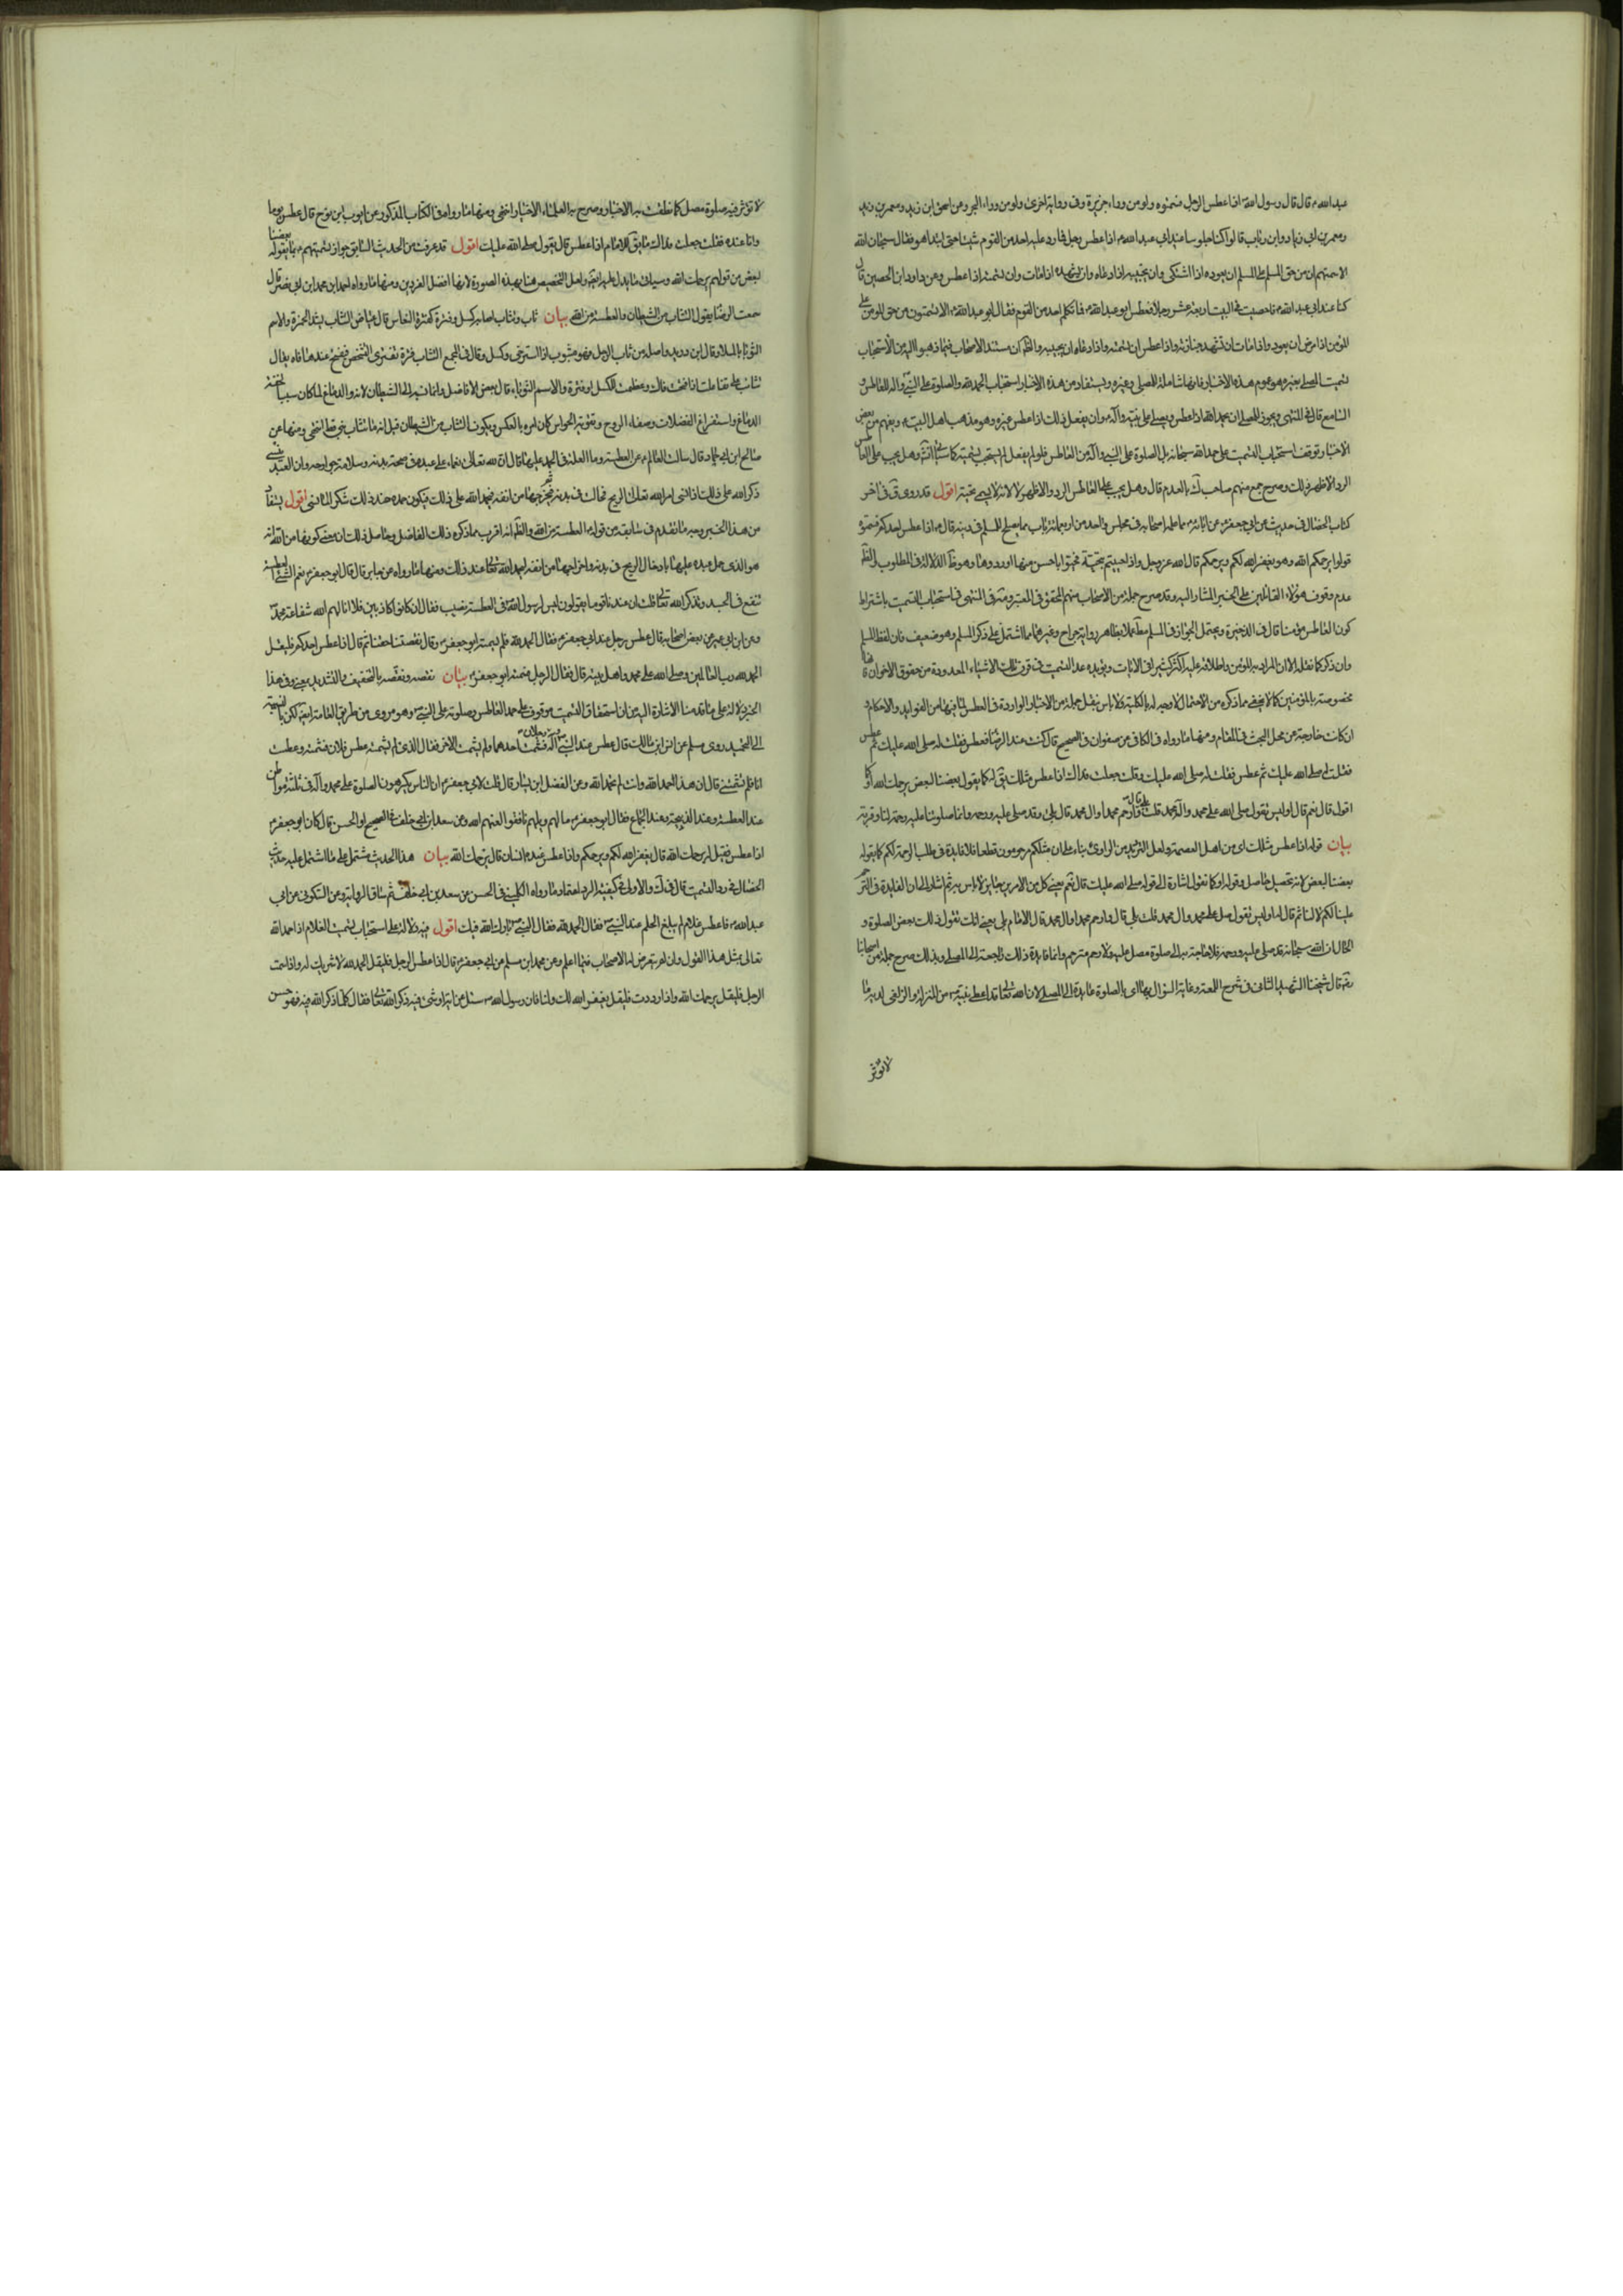 عبد الله ع قال قال رسول الله ص اذا عطس الرجل فسمتوه ولو من وراء جزيرة وفي رواية اخرى ولو من وراء البحر وعن اسحق ابن زيد ومعمر بن
ومعمر بن ابي زياد وابن رئاب قالوا كنا جلوسا عند ابي عبد الله ع اذا عطس رجل فما رد عليه احد من القوم شيئا حتى ابتدا هو فقال سبحان الله
الا سمتم ان من حق المسلم على المسلم ان يعوده اذا اشتكى وان يجيبه اذا دعاه وان يشهده اذا مات وان يسمته اذا عطس وعن داود ابن الحصين قال
كنا عند ابي عبد الله ع فاحصيت في البيت اربعة عشر رجلا فعطس ابو عبد الله ع فما تكلم احد من القوم فقال ابو عبد الله ع الا تسمتون من حق المومن على
المؤمن اذا مرض ان يعوده واذا مات ان تشهد جنازته واذا عطس ان يسمته واذا دعاه ان يجيبه والظ ان مستند الاصحاب فيما ذهبوا اليه من الاستحباب
تسميت المصلي بغيره هو عموم هذه الاخبار فانها شاملة للمصلي وغيره ويستفاد من هذه الاخبار استحباب الحمد لله والصلوة على النبي واله للعاطس و
السامع قال في المنتهى ويجوز للمصلي ان يحمد الله اذا عطس ويصلي على نبيه وآله وان يفعل ذلك اذا عطس غيره وهو مذهب اهل البيت ع ويفهم من بعض
الاخبار توقف استحباب التسميت على حمد الله سبحانه بل الصلوة على النبي وآله من العاطس فلو لم يفعل لم يستحب تسميته كما سياتي انش وهل يجب على العاطس
الرد الاظهر ذلك وصرح جمع منهم صاحب ك بالعدم قال وهل يجب على العاطس الرد والاظهر لا لانه لا يسمى تحية اقول قد روى ق في اخر
كتاب الخصال في حديث عن ابي جعفر ع عن ابائه ع مما علم اصحابه في مجلس واحد من اربعمائة باب مما يصلح للمسلم في دينه قال ع اذا عطس احدكم فسمتوه
قولوا يرحمكم الله وهو يغفر الله لكم ويرحمكم قال الله عز وجل واذا حييتم بتحية فحيوا باحسن منها او ردوها وهو ظاهر الدلالة في المطلوب والظ
عدم وقوف هؤلاء القائلين على الخبر المشار اليه وقد صرح جملة من الاصحاب منهم المحقق في المعتبر ومة في المنتهى في استحباب التسميت باشتراط
كون العاطس مؤمنا قال في الذخيرة ويحتمل الجواز في المسلم مط عملا بظاهر رواية جراح وغيرها مما اشتمل على ذكر المسلم وهو ضعيف فان لفظ المسلم
وان ذكر كما نقله الا ان المراد به المؤمن واطلاقه عليه اكثر كثير في الايات ويؤيده عد التسميت في قرن تلك الاشياء المعدودة من حقوق الاخوان
مخصوصة بالمؤمنين كما لا يخفى ما ذكره من الاحتمال لا وجه له بالكلية ولا باس بنقل جملة من الاخبار الواردة في العطس لما فيها من الفوايد والاحكام و
ان كانت خارجة عن محل البحث في المقام ومنها ما رواه في الكافي عن صفوان في الصحيح قال كنت عند الرضا فعطس فقلت له صلى الله عليك ثم عطس
فقلت صلى الله عليك ثم عطس فقلت له صلى الله عليك وقلت جعلت فداك اذا عطس مثلك نقول له كما يقول بعضنا لبعض يرحمك الله او كما
اقول قال نعم قال اوليس تقول صلى الله على محمد وآل محمد قلت بلى قال وارحم محمدا وال محمد قال بلى وقد صلى عليه ورحمه وانما صلوتنا عليه رحمة لنا وقربة
بيان قوله اذا عطس مثلك اي من اهل العصمة ولعل الترديد من الراوي بناء على ان مثلكم مرحومون قطعا فلا فايدة في طلب الرحمة لكم كما يقوله
بعضنا لبعض لانه تحصيل حاصل وقوله او كما نقول اشارة الى قوله صلى الله عليك قال نعم يعني كل من الامرين جايز لا باس به ثم اشار الى ان الفايدة في الترحم
علينا لكم لا لنا ثم قال اما اوليس تقول صل على محمد وال محمد قلت بلى قال وارحم محمدا وال محمد قال الامام بلى يعني انك تقول ذلك بعض الصلوة و
الحال ان الله سبحانه قد صلى عليه ورحمه فلا حاجة به الى صلوة مصل عليه ولا رحم مترحم وانما فايدة ذلك راجعة الى المصلي وبذلك صرح جملة من اصحابنا
رض قال شيخنا الشهيد الثاني في شرح اللمعة وغاية السؤال بها اي بالصلوة عايدة الى المصلي لان الله تعالى قد اعطى نبيه ص من المنزلة والزلفى لديه ما
لا تؤثر
لا تؤثر فيه صلوة مصل كما نطقت به الاخبار وصرح به العلماء الاخيار انتهى ومنها ما رواه في الكتاب المذكور عن ايوب ابن نوح قال عطس يوما
وانا عنده فقلت جعلت فداك ما يق للامام اذا عطس قال يقول صلى الله عليك اقول قد عرفت من الحديث السابق جواز تسميتهم بما يقوله بعضنا
لبعض من قولهم يرحمك الله وسياتي ما يدل عليه ايض ولعل التخصيص هنا بهذه الصورة لانها افضل الفردين ومنها ما رواه احمد ابن محمد ابن ابي نصر قال
سمعت الرضا يقول التثاب من الشيطان والعطسة من الله بيان ثاب وتثاب اصابه كسل وفترة كفترة النعاس قال عياض التثاب بشد الهمزة والاسم
الثوبا بالمد وقال ابن دريد واصله من ثاب الرجل فهو مثوب اذا استرخى وكسل وقال في المجمع التثاب فترة تعتري الشخص فيفتح عندها فاه يقال
تثاب على تفاعلت اذا فتحت فاك وتمطيت لكسل او فترة والاسم الثوباء قال بعض الافاضل وانما نسبه الى الشيطان لانه والدماغ لما كان سببا لخفة
الدماغ واستفراغ الفضلات وصفاء الروح وتقوية الحواس كان امره بالعكس ويكون التثاب من الشيطان قيل انه ما تثاب نبي قط انتهى ومنها عن
صالح ابن ابي حماد قال سالت العالم ع عن العطسة وما العلة في الحمد عليها فقال ان لله تعالى نعماء على عبده في صحة بدنه وسلامة جوارحه وان العبد ينسى
ذكر الله على ذلك فاذا نسى امر الله تعالى الريح فجالت في بدنه ثم يخرجها من انفه فيحمد الله على ذلك فيكون حمده عند ذلك شكرا لما نسى اقول يستفاد
من هذا الخبر وجه ما تقدم في سابقه من قوله العطسة من الله والظ انه اقرب مما ذكره ذلك الفاضل وحاصل ذلك ان معنى كونها من الله انه
هو الذي حمل عبده عليها بادخال الريح في بدنه واخراجها من انفه ليحمد الله تعالى عند ذلك ومنها ما رواه عن جابر قال قال ابو جعفر ع نعم الشيء العطسة
تنفع في الجسد وتذكر الله تعالى قلت ان عندنا قوما يقولون ليس لرسول الله ص في العطسة نصيب فقال ان كانوا كاذبين فلا انالهم الله شفاعة محمد ص
وعن ابن ابي عمير عن بعض اصحابه قال عطس رجل عند ابي جعفر ع فقال الحمد لله فلم يسمته ابو جعفر ع وقال نقصنا حقنا ثم قال اذا عطس احدكم فليقل
الحمد لله رب العالمين وصلى الله على محمد واهل بيته قال فقال الرجل فسمته ابو جعفر ع بيان نقصه ونقصه بالتخفيف والتشديد بمعنى وفي هذا
الخبر دلالة على ما قدمنا الاشارة اليه من ان استحقاق التسميت موقوف على حمد العاطس وصلوته على النبي ص وهو مروي من طريق العامة ايض لكن بالنسبة
الى التحميد روى مسلم عن انس ابن مالك قال عطس عند النبي ص رجلان فسمت احدهما ولم يسمت الاخر فقال الذي لم يسمته عطس فلان فسمته وعطست
انا فلم تسمتني قال ان هذا احمد الله وانت لم تحمد الله وعن الفضل ابن يسار قال قلت لابي جعفر ع ان الناس يكرهون الصلوة على محمد وآله في ثلثة مواطن
عند العطسة وعند الذبيحة وعند الجماع فقال ابو جعفر ع ما لهم ويلهم نافقوا لعنهم الله وعن سعد ابن ابي خلف في الصحيح او الحسن قال كان ابو جعفر ع
اذا عطس فقيل له يرحمك الله قال يغفر الله لكم ويرحمكم واذا عطس عنده انسان قال يرحمك الله بيان هذا الحديث مشتمل على ما اشتمل عليه حديث
الخصال في رد التسميت قال في ك والاولى في كيفية الرد اعتماد ما رواه الكليني في الحسن عن سعد بن ابي خلف ثم ساق الرواية وعن السكوني عن ابي
عبد الله ع قال عطس غلام لم يبلغ الحلم عند النبي ص فقال الحمد لله فقال النبي ص بارك الله فيك اقول فيه دلالة على استحباب تسميت الغلام اذا حمد الله
تعالى بمثل هذا القول وان لم يتعرض له الاصحاب فيما اعلم وعن محمد ابن مسلم عن ابي جعفر ع قال اذا عطس الرجل فليقل الحمد لله لا شريك له واذا سمت
الرجل فليقل يرحمك الله واذا رددت فليقل يغفر الله لك ولنا فان رسول الله ص سئل عن اية او شيء فيه ذكر الله تعالى فقال كلما ذكر الله فيه فهو حسن